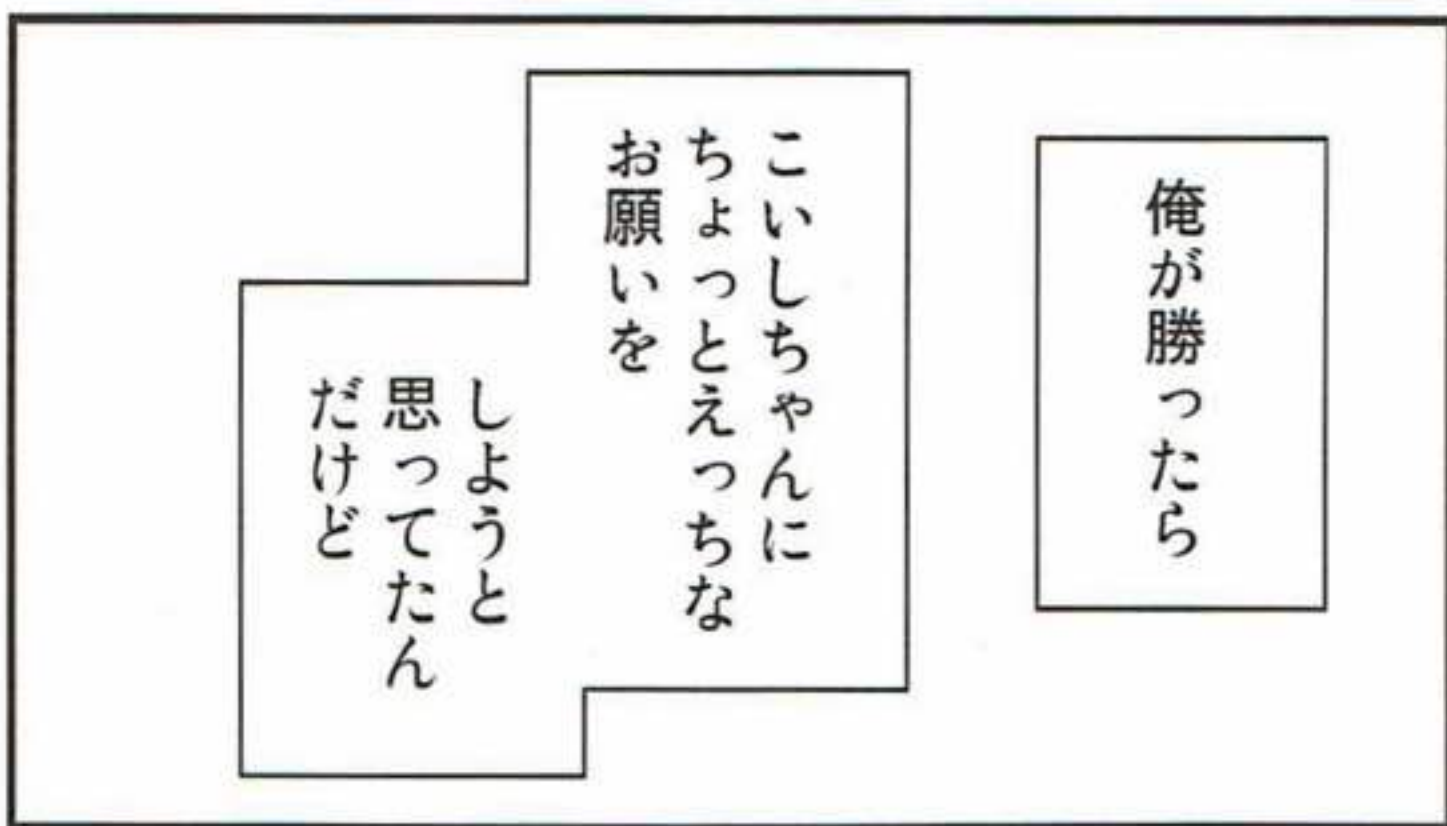 俺が勝ったら
こいしちゃんに
ちょっとえっちな
お願いを
しようと
思ってたん
だけど